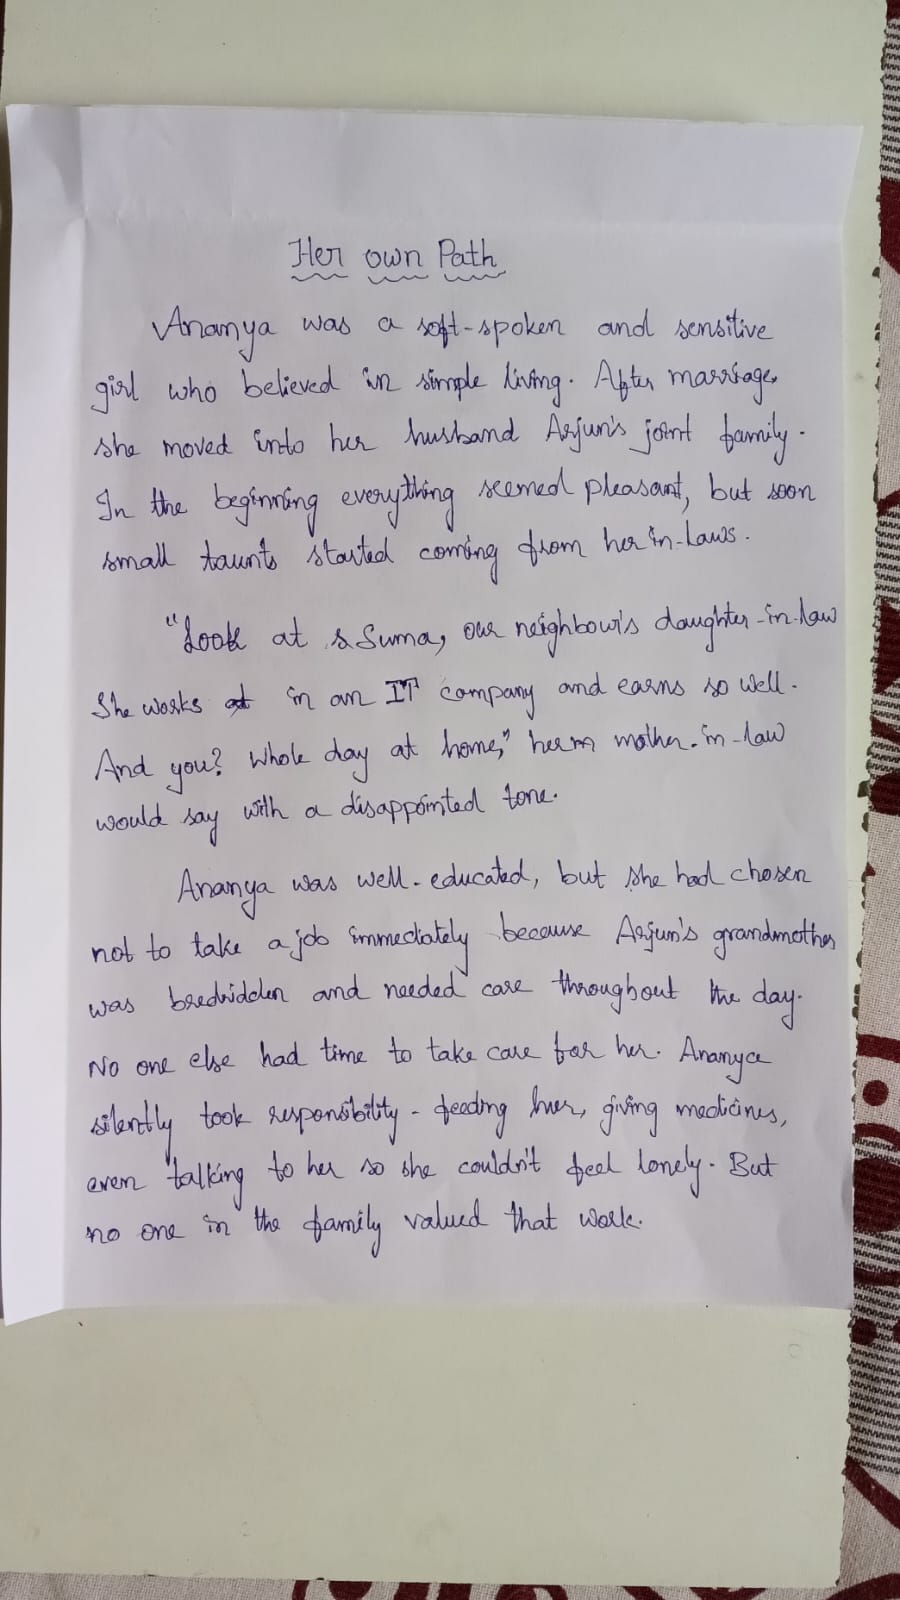 Her own Path
Ananya was a soft-spoken and sensitive
girl who believed in simple living. After marriage,
she moved into her husband Arjun's joint family.
In the beginning everything seemed pleasant, but soon
small taunts started coming from her in-laws.
"Look at Suma, our neighbour's daughter-in-law
She works in an IT company and earns so well.
And you? Whole day at home," her mother-in-law
would say with a disappointed tone.
Ananya was well-educated, but she had chosen
not to take a job immediately because Arjun's grandmother
was bredridden and needed care throughout the day.
No one else had time to take care for her. Ananya
silently took responsibility - feeding her, giving medicines,
even talking to her so she couldn't feel lonely. But
no one in the family valued that work.